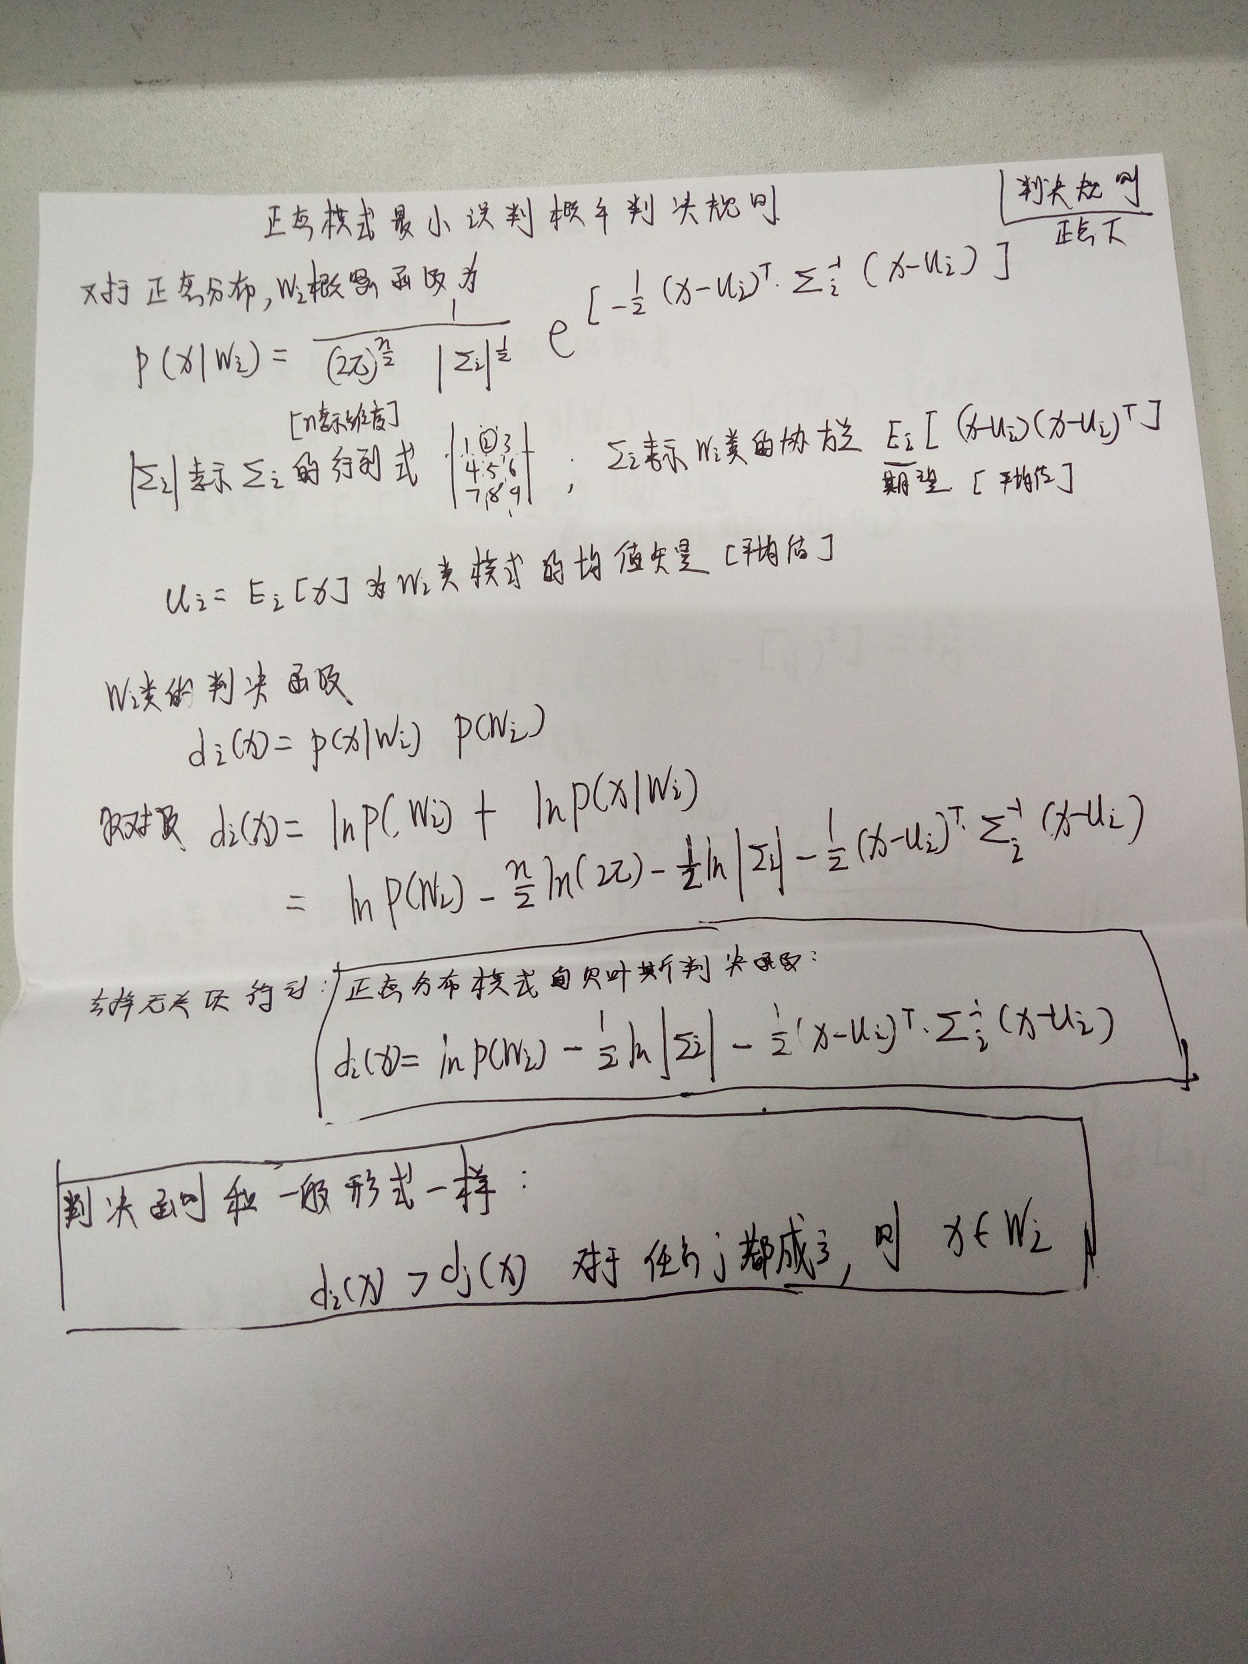 正态模式最小误判概率判决规则
判决规则
正态下
对于正态分布, Wi概率函数为
p(x|Wi) = 1 / ((2π)^(n/2) |Σi|^(1/2)) e^[-1/2 (x-ui)^T · Σi^-1 (x-ui)]
[n表示维度]
|Σi| 表示 Σi 的行列式 |1 2 3
4 5 6
7 8 9| ; Σi表示 Wi类的协方差 Ei[(x-ui)(x-ui)^T]
期望 [平均值]
ui = Ei[x] 为Wi类模式的均值矢量 [平均值]
Wi类的判决函数
di(x) = p(x|Wi) p(Wi)
取对数 di(x) = ln p(Wi) + ln p(x|Wi)
= ln p(Wi) - n/2 ln(2π) - 1/2 ln|Σi| - 1/2 (x-ui)^T · Σi^-1 (x-ui)
去掉无关项得到: 正态分布模式的贝叶斯判决函数:
di(x) = ln p(Wi) - 1/2 ln|Σi| - 1/2 (x-ui)^T · Σi^-1 (x-ui)
判决函则和一般形式一样:
di(x) > dj(x) 对于任何j都成立, 则 x∈Wi